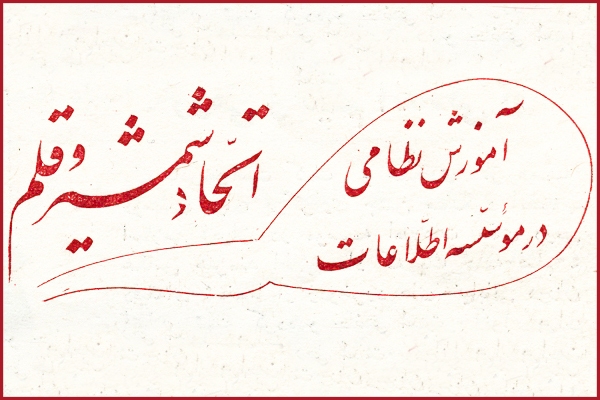 آموزش نظامی
در مؤسّسه اطّلاعات
اتّحاد شمشیر و قلم